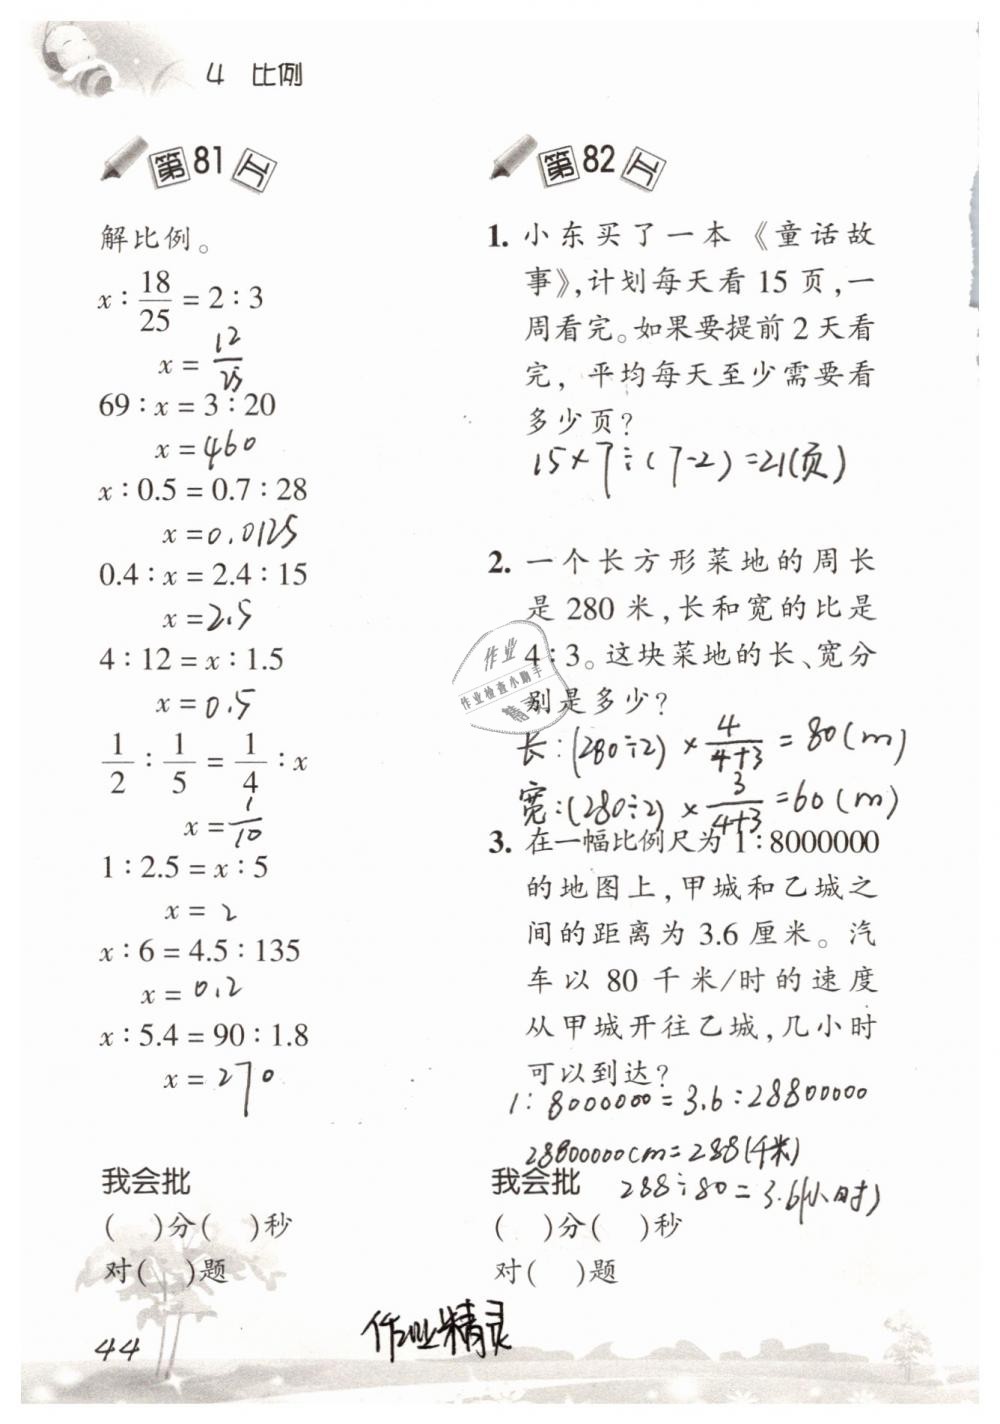 4 比例
第81页
解比例。
x : 18/25 = 2 : 3
x = 12/25
69 : x = 3 : 20
x = 460
x : 0.5 = 0.7 : 28
x = 0.0125
0.4 : x = 2.4 : 15
x = 2.5
4 : 12 = x : 1.5
x = 0.5
1/2 : 1/5 = 1/4 : x
x = 1/10
1 : 2.5 = x : 5
x = 2
x : 6 = 4.5 : 135
x = 0.2
x : 5.4 = 90 : 1.8
x = 270
我会批
( )分( )秒
对( )题
44
第82页
1. 小东买了一本《童话故
事》,计划每天看 15 页,一
周看完。如果要提前 2 天看
完, 平均每天至少需要看
多少页?
15×7÷(7-2)=21(页)
2. 一个长方形菜地的周长
是 280 米,长和宽的比是
4 : 3。这块菜地的长、宽分
别是多少?
长:(280÷2) × 4/4+3 = 80(m)
宽:(280÷2) × 3/4+3 = 60(m)
3. 在一幅比例尺为 1 : 8000000
的地图上,甲城和乙城之
间的距离为 3.6 厘米。汽
车以 80 千米/时的速度
从甲城开往乙城,几小时
可以到达?
1 : 8000000 = 3.6 : 28800000
28800000cm = 288(千米)
288÷80=3.6(小时)
我会批
( )分( )秒
对( )题
作业
作业检查小助手
精灵
作业精灵